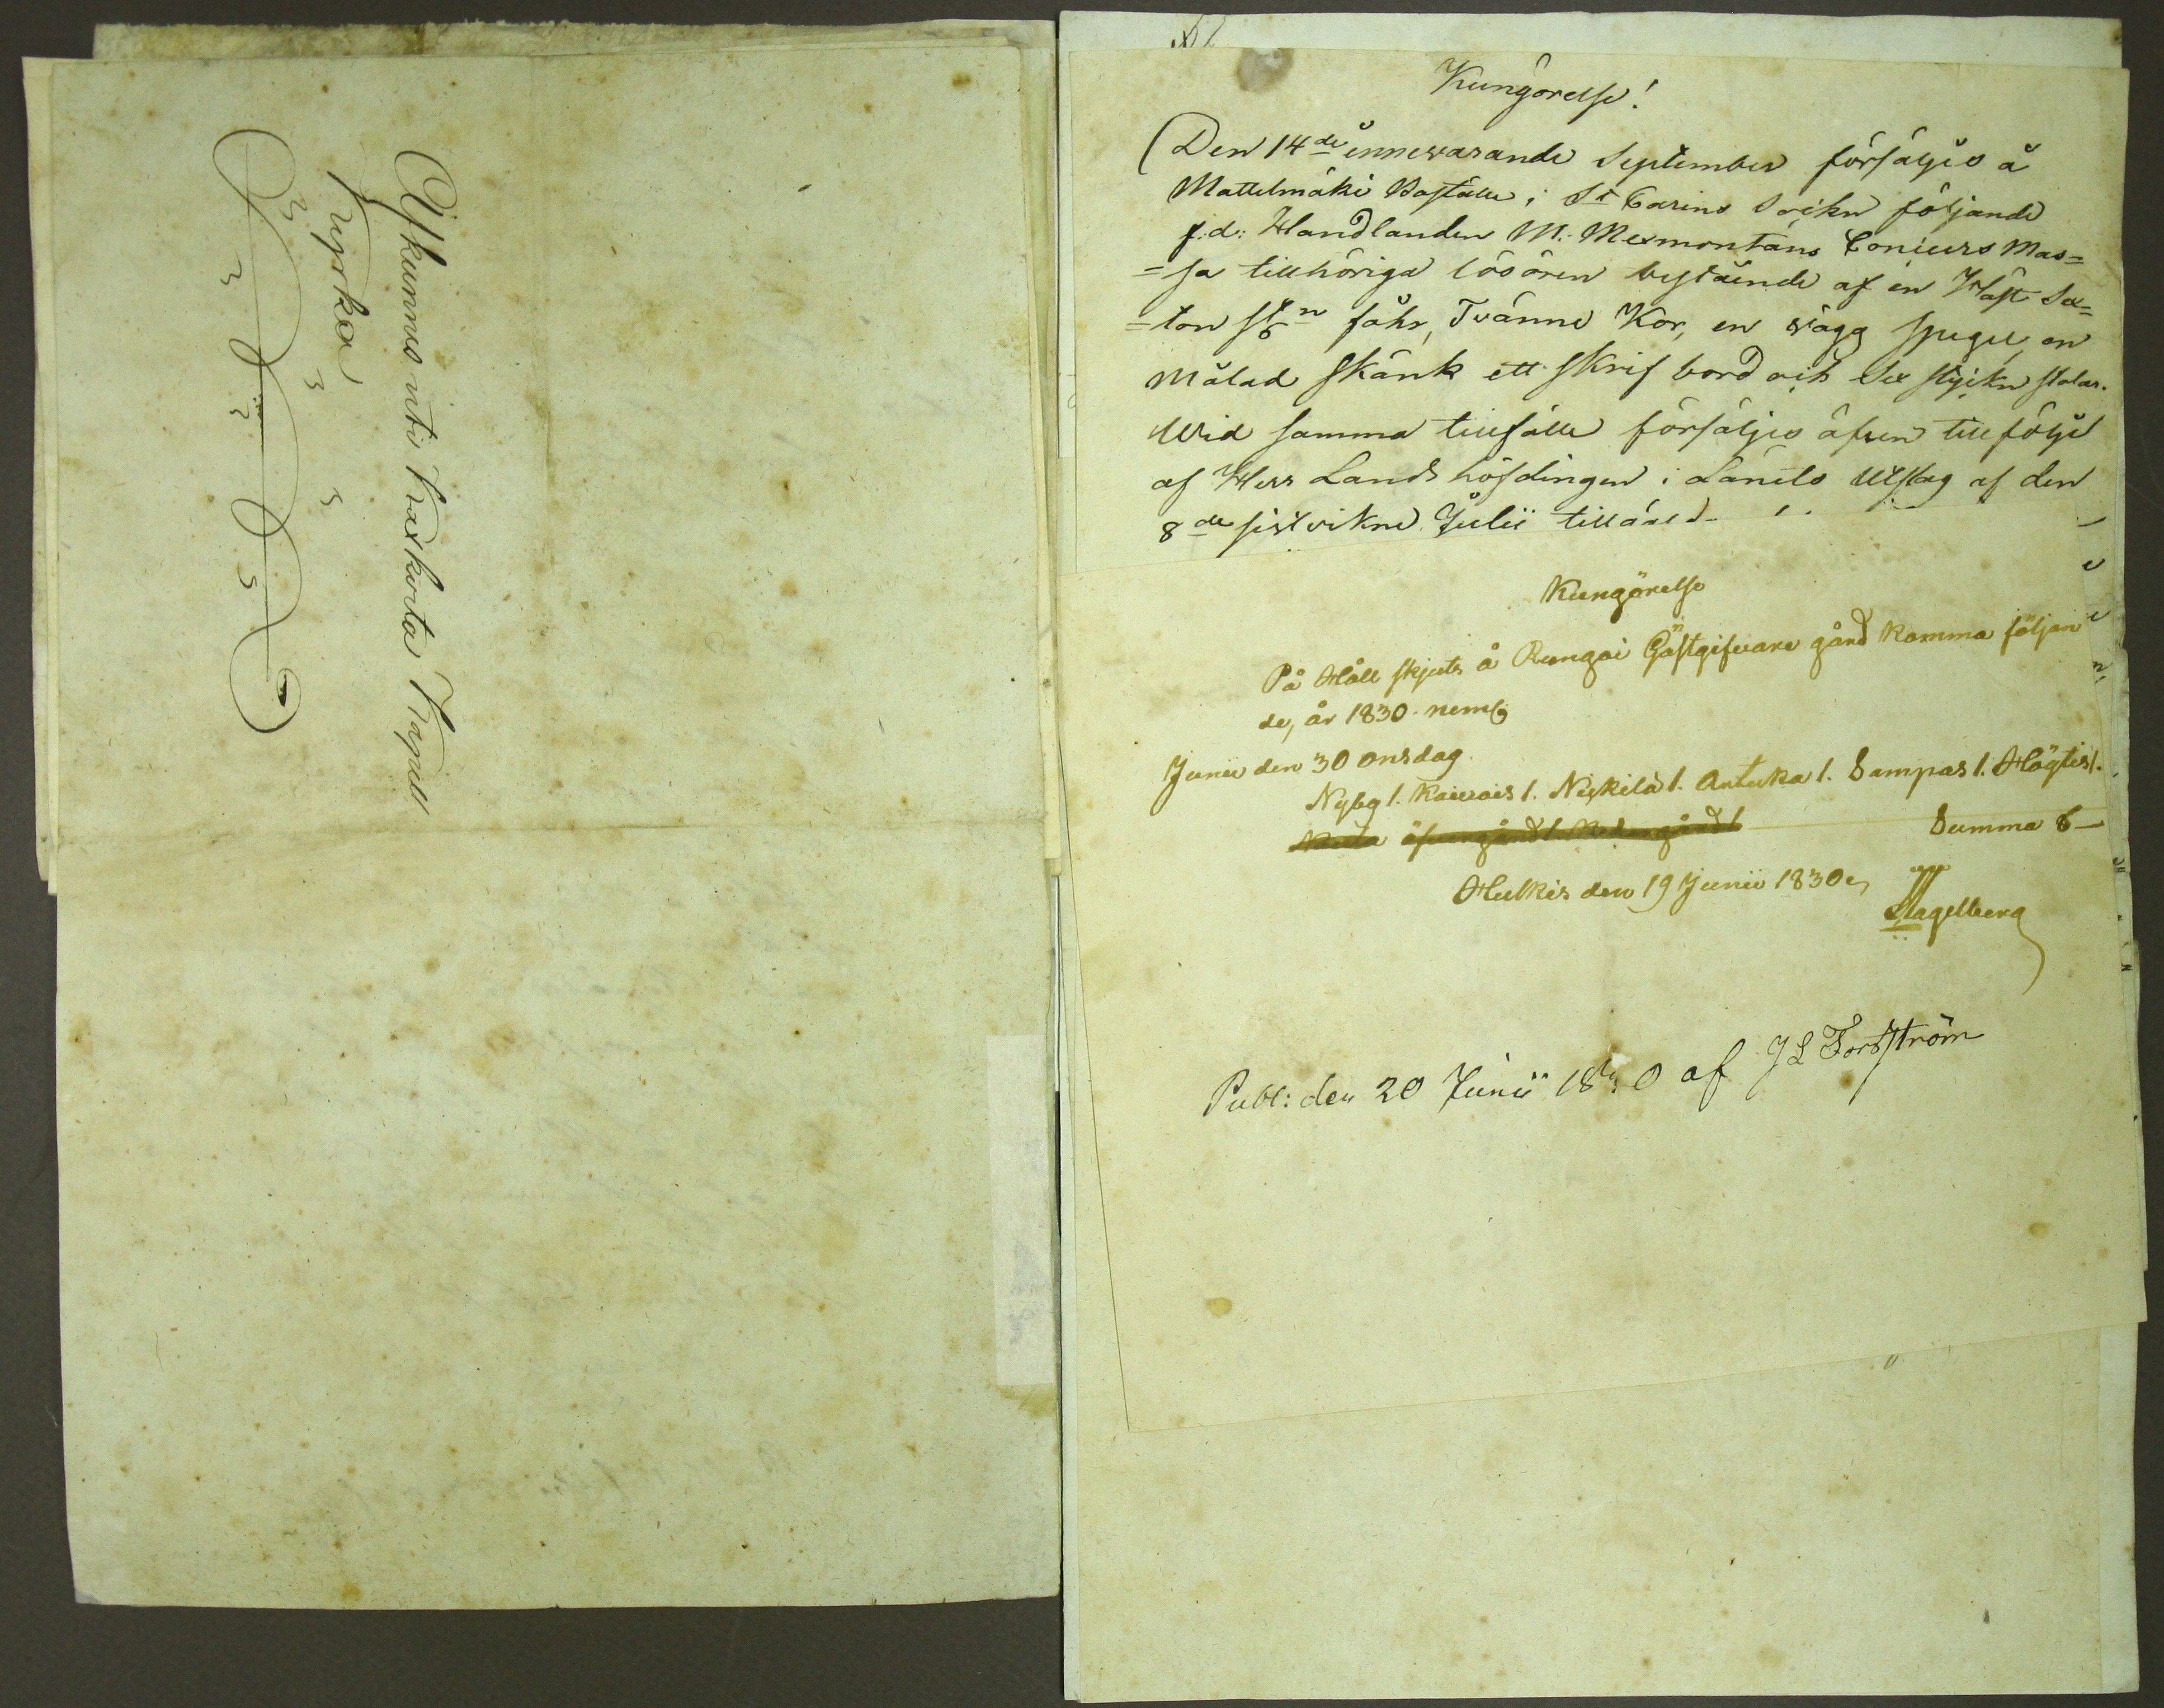 Afkunnas uti Kaxkerta Kapell
Kyrka
Kungörelse!
Den 14de innevarande September försäljes å
Mattelmäki Boställe i St Carins Sockn följande
f:d: Handlanden M: Mexmontans Concurs Mas=
=sa tillhöriga lösören bestående af en Häst Sex=
=ton st:n fåhr, Tvänne Kor, en vägg spegel, en
Målad Skänk ett Skrif bord och Sex styckn stolar.
Wid samma tillfälle försäljes äfven till följe
af Herr Lands höfdingen i Länets Utslag af den
8de sistvikne Julii
Kungörelse
På Håll skjuts å Rungoi Gästgifvare gård komma följan
de, år 1830. neml
Junii den 30 onsdag.
Nybg 1. Kairois 1. Niskilä 1. Antuka 1. Sampas 1. Högtis 1.
Summa 6
Hulkis den 19 Junii 1830
Hagelberg
Publ: den 20 Junii 1830 af J L Forsström